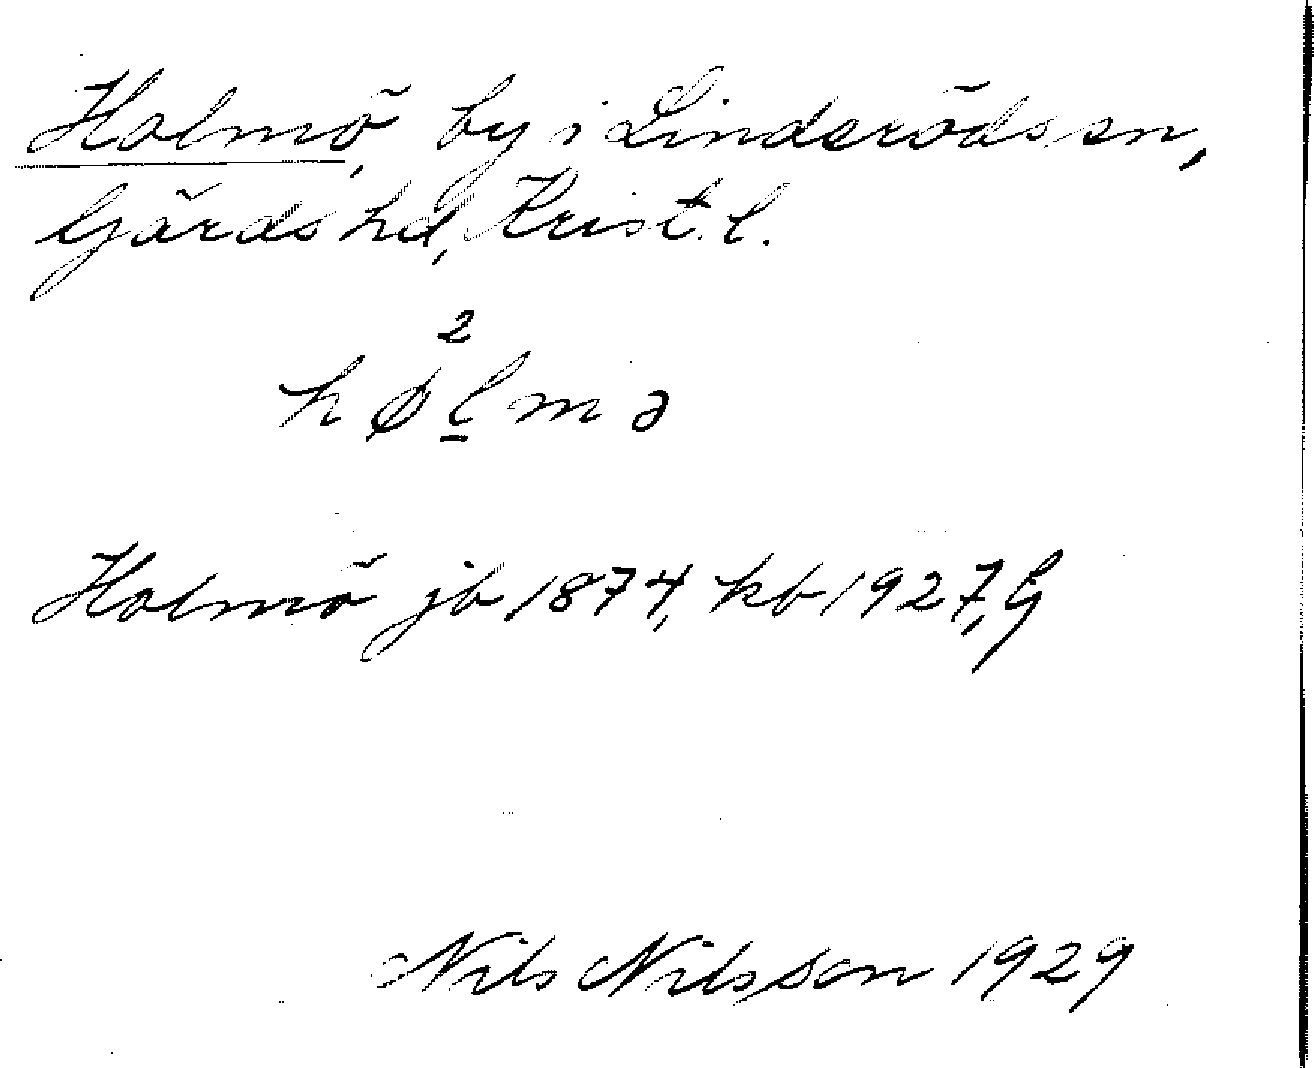 Holmö, by i Linderöds sn,
Gärds hd, Krist. l.
2
hølmə
Holmö jb 1874, kb 1927, G
Nils Nilsson 1929